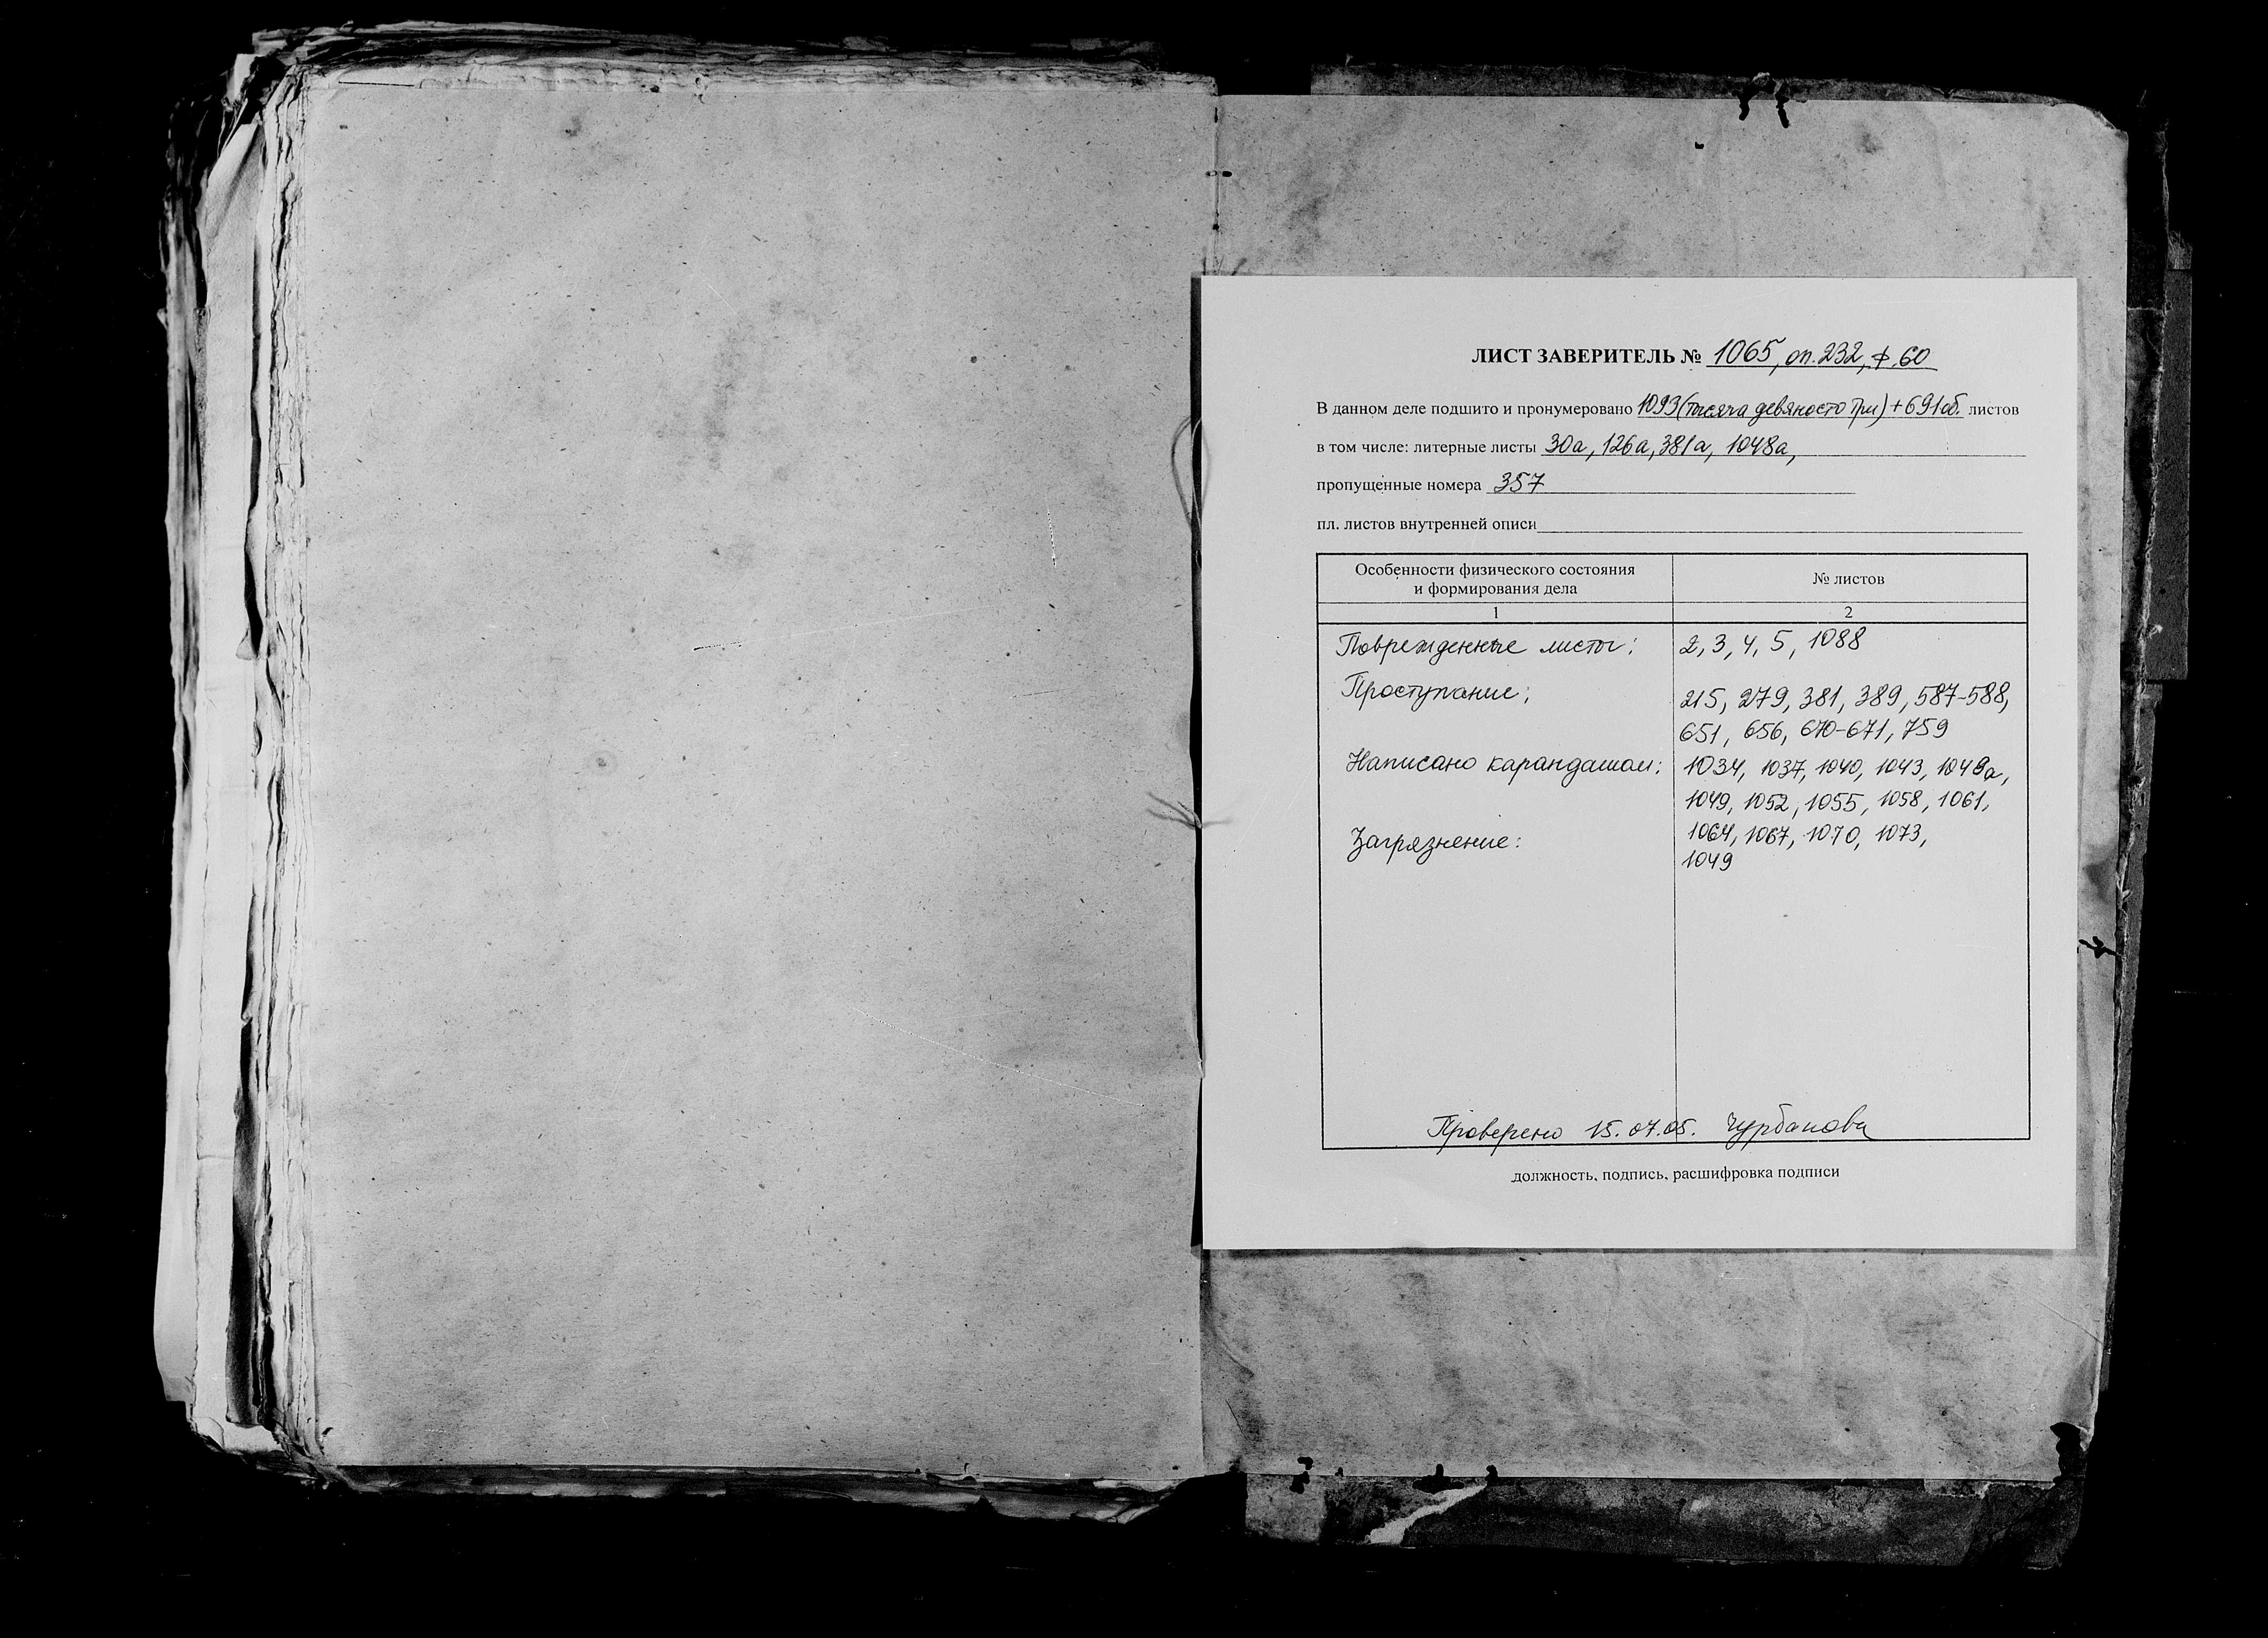 ЛИСТ ЗАВЕРИТЕЛЬ № 1065, оп. 232, ф. 60
В данном деле подшито и пронумеровано 1093 (тысяча девяносто три) + 691 об. листов
в том числе: литерные листы 30а, 126а, 381а, 1048а,
пропущенные номера 357
пл. листов внутренней описи
Особенности физического состояния и формирования дела № листов
1 2
Поврежденные листы: 2, 3, 4, 5, 1088
Проступание: 215, 279, 381, 389, 587-588,
651, 656, 670-671, 759
Написано карандашом: 1034, 1037, 1040, 1043, 1048а,
1049, 1052, 1055, 1058, 1061,
1064, 1067, 1070, 1073,
Загрязнение: 1049
Проверено 15.07.05. Чурбанова
должность, подпись, расшифровка подписи